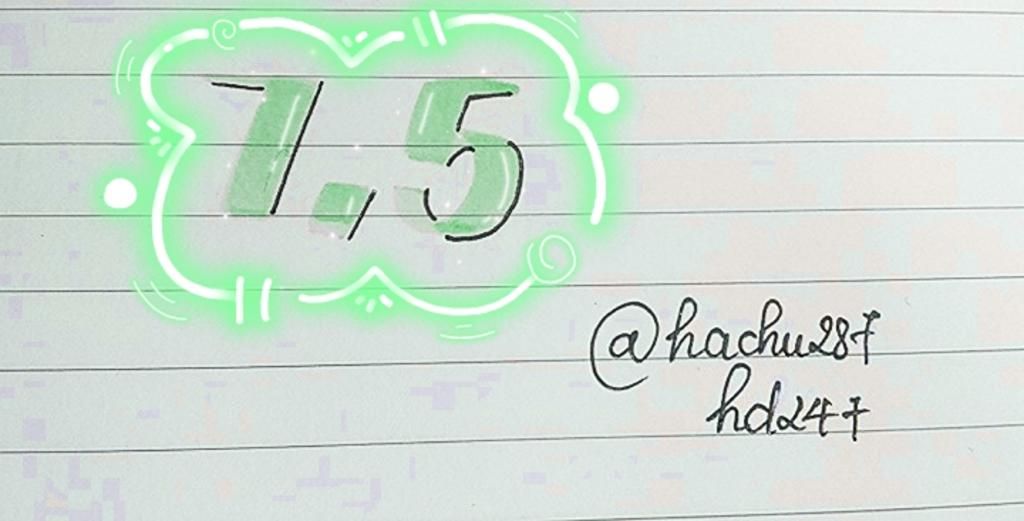 7,5
@hachu287
hd247